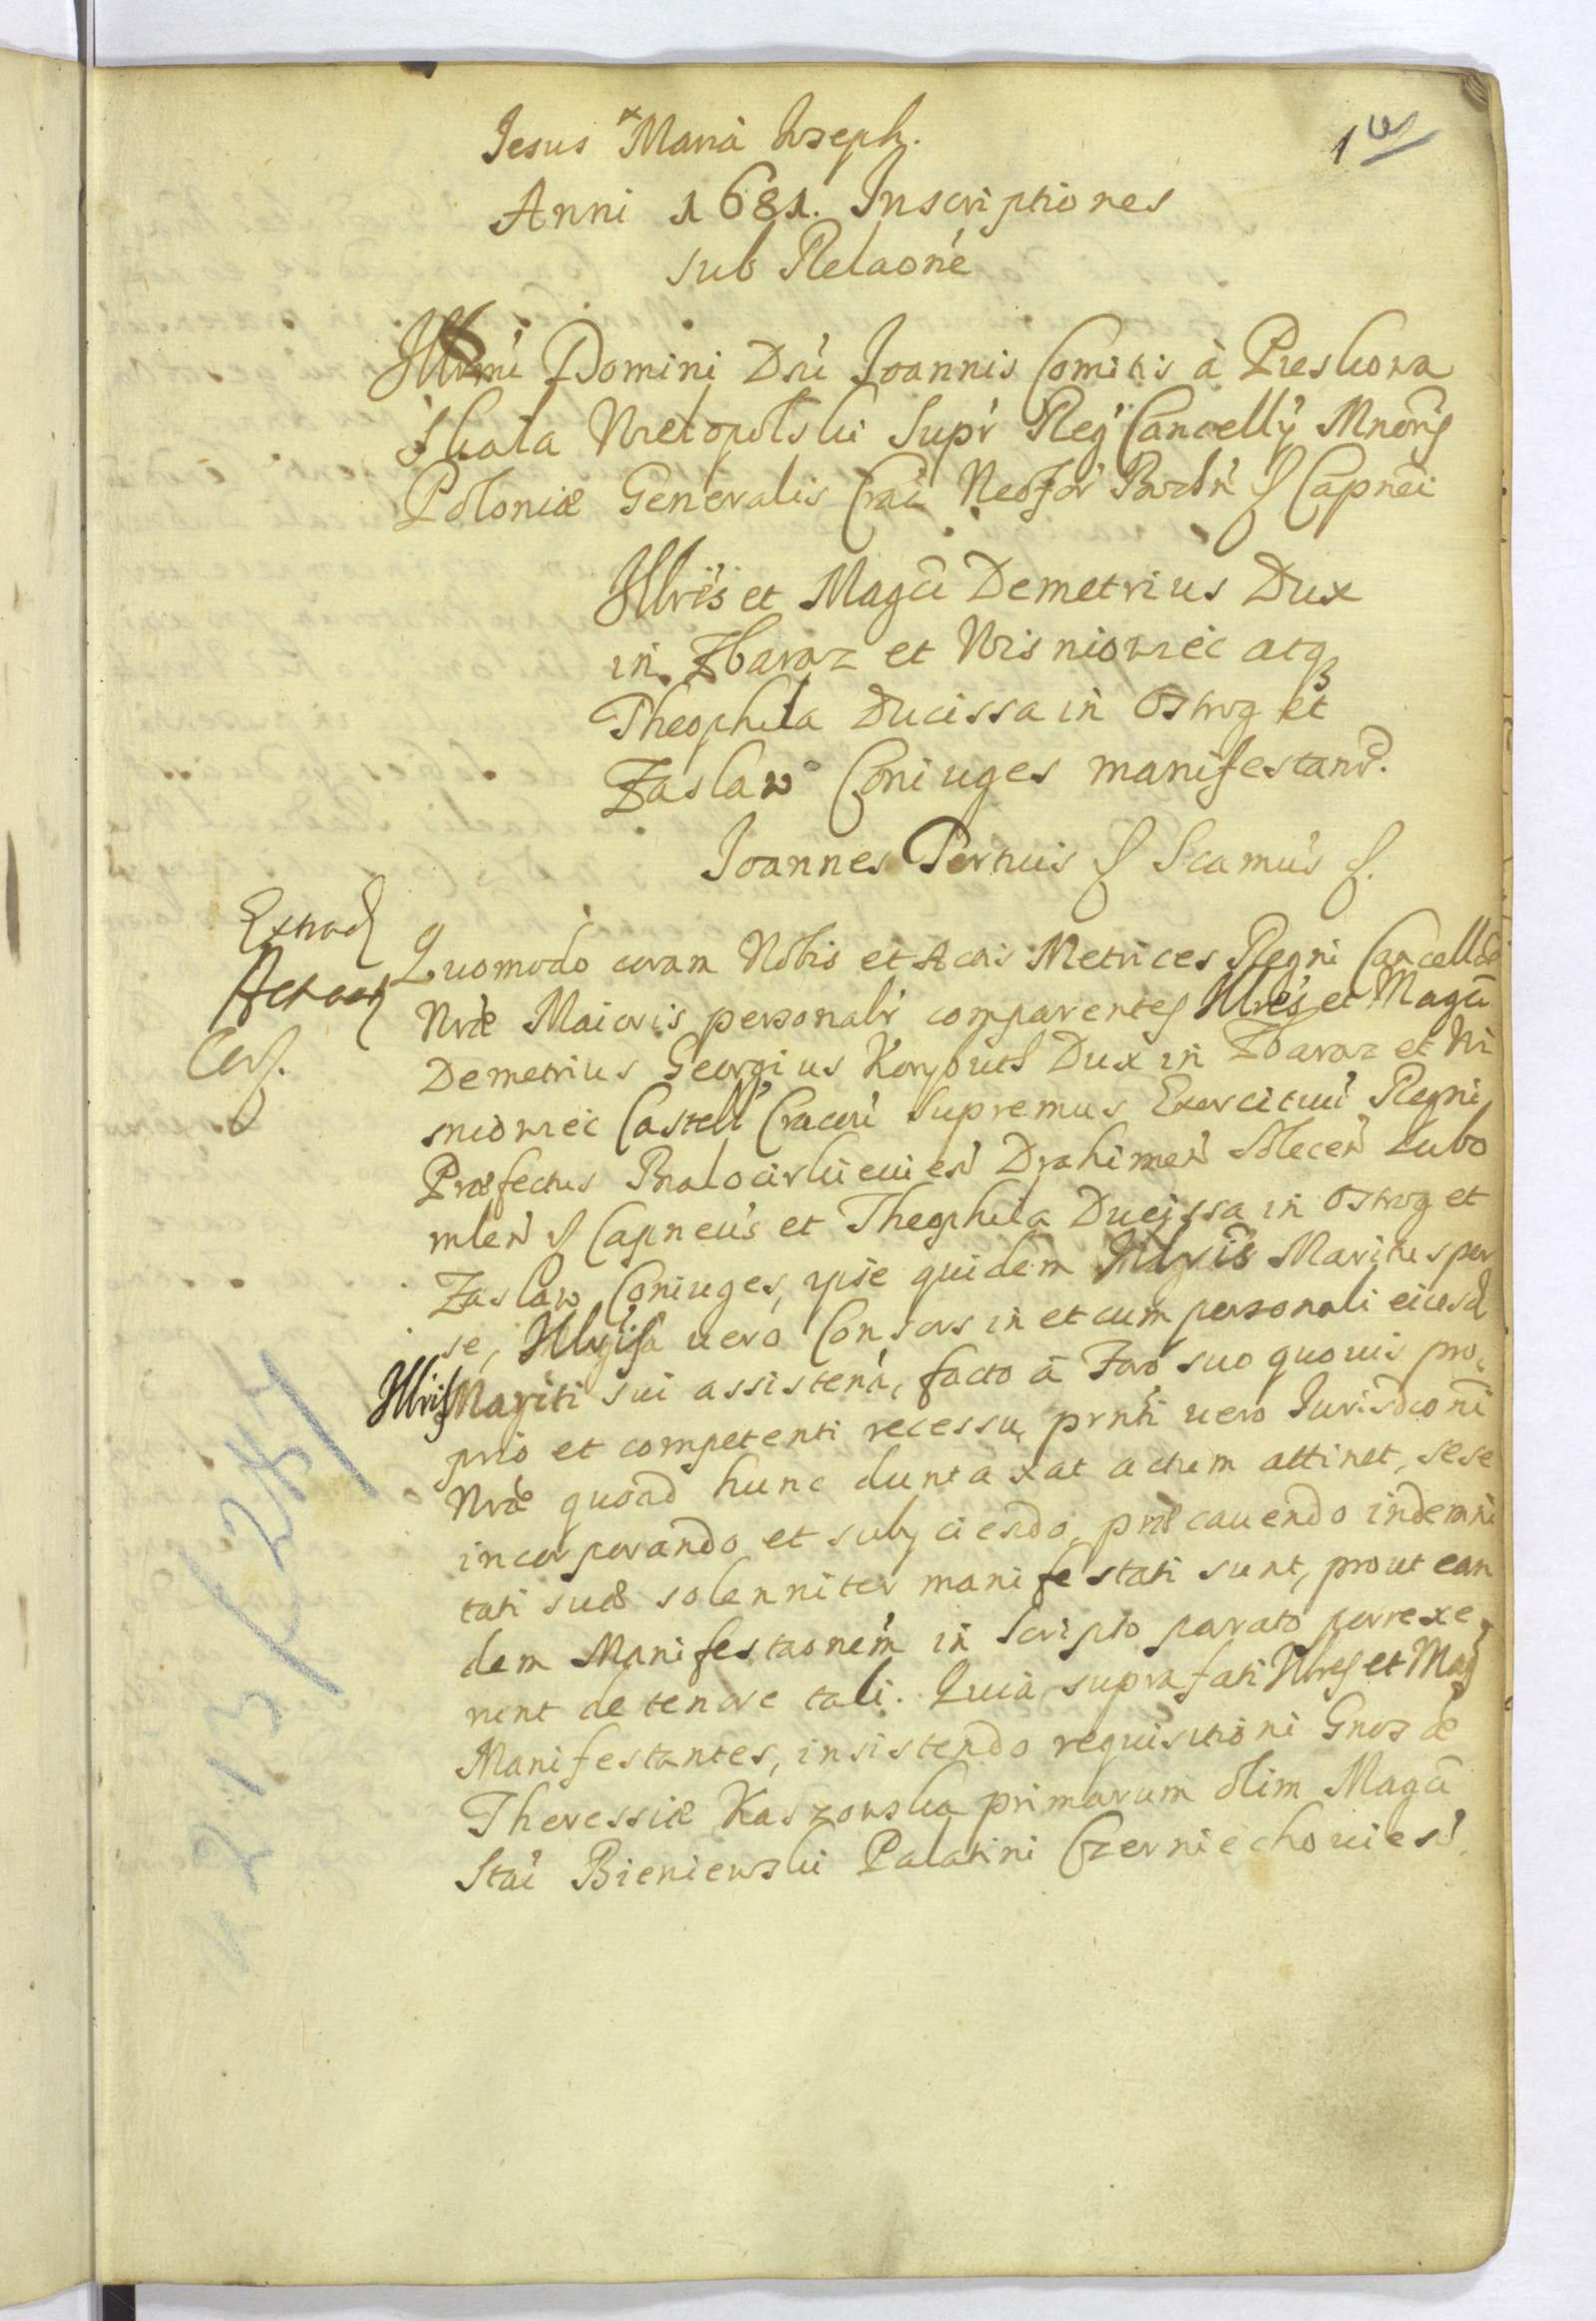 1
Jesus Maria Joseph.
Anni 1681. Inscriptiones
sub Relaoñe
Illrmi Domini Dñi Joannis Comitis à Pieskowa
Skała Wielopolski Supr Regñ Cancellÿ Mnoris
Poloniæ Generalis Crac Neofor Bochñ & Capnei
Illris et Magcus Demetrius Dux
in Zbaraz et Wisniowiec atq3
Theophila Ducissa in Ostrog et
Zaslaw Coniuges manifestant.
Joannes Pernus & Scamus &.
Extrad
Cor.
Quomodo coram Nobis et Actis Metrices Regni Cancellæ
Nræ Maioris personalr comparentes Illres et Magci
Demetrius Georgius Korybuth Dux in Zbaraz et Wi
sniowiec Castell Cracoñ Supremus Exercituũ Regni
Præfectus Bialocirkieuień Drahimeń Soleceń Lubo
mleń & Capneus et Theophila Ducissa in Ostrog et
Zaslaw Coniuges, ipse quidem Illris Maritus per
se, Illris uero Consors in et cum personali eiusd
Illris Mariti sui assistentia, facto à Foro suo quouis pro,
prio et competenti recessu, prnti uero Jurisdconi
Nræ quoad hunc duntaxat actum attinet, sese
incorporando et subijciendo, præcauendo indemni
tati suæ solenniter manifestati sunt, prout ean
dem Manifestaonem in Scripto parato porrexe,
runt de tenore tali. Quia suprafati Illres et Mag
Manifestantes, insistendo requisitioni Gnosæ
Theressiæ Kaszowska primarum olim Magci
Stai Bieniewski Palatini Czerniechouień